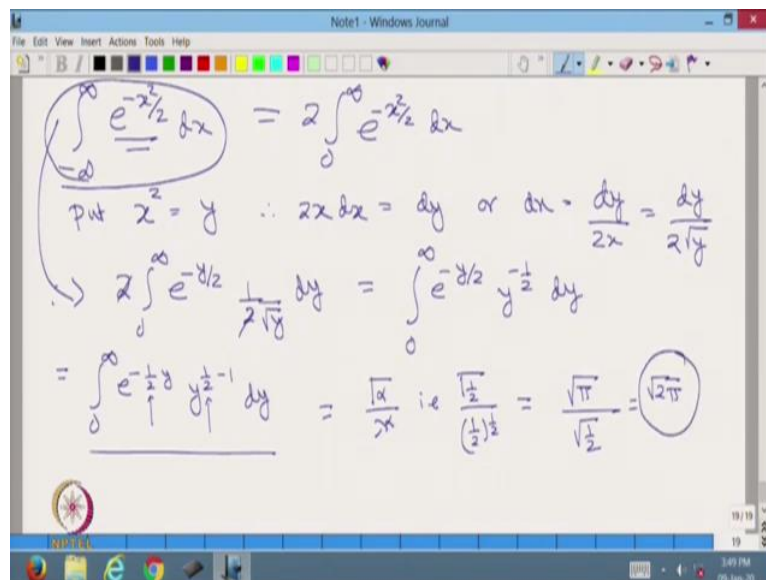 Note1 - Windows Journal
File Edit View Insert Actions Tools Help
∫_{-∞}^{∞} e^{-x²/2} dx = 2 ∫_0^∞ e^{-x²/2} dx
Put x² = y ∴ 2x dx = dy or dx = dy/2x = dy/2√y
2 ∫_0^∞ e^{-y/2} 1/2√y dy = ∫_0^∞ e^{-y/2} y^{-1/2} dy
= ∫_0^∞ e^{-1/2 y} y^{1/2 - 1} dy = Γα/ i.e Γ1/2/(1/2)^{1/2} = √π/√1/2 = √2π
NPTEL
19/19
19
3:49 PM